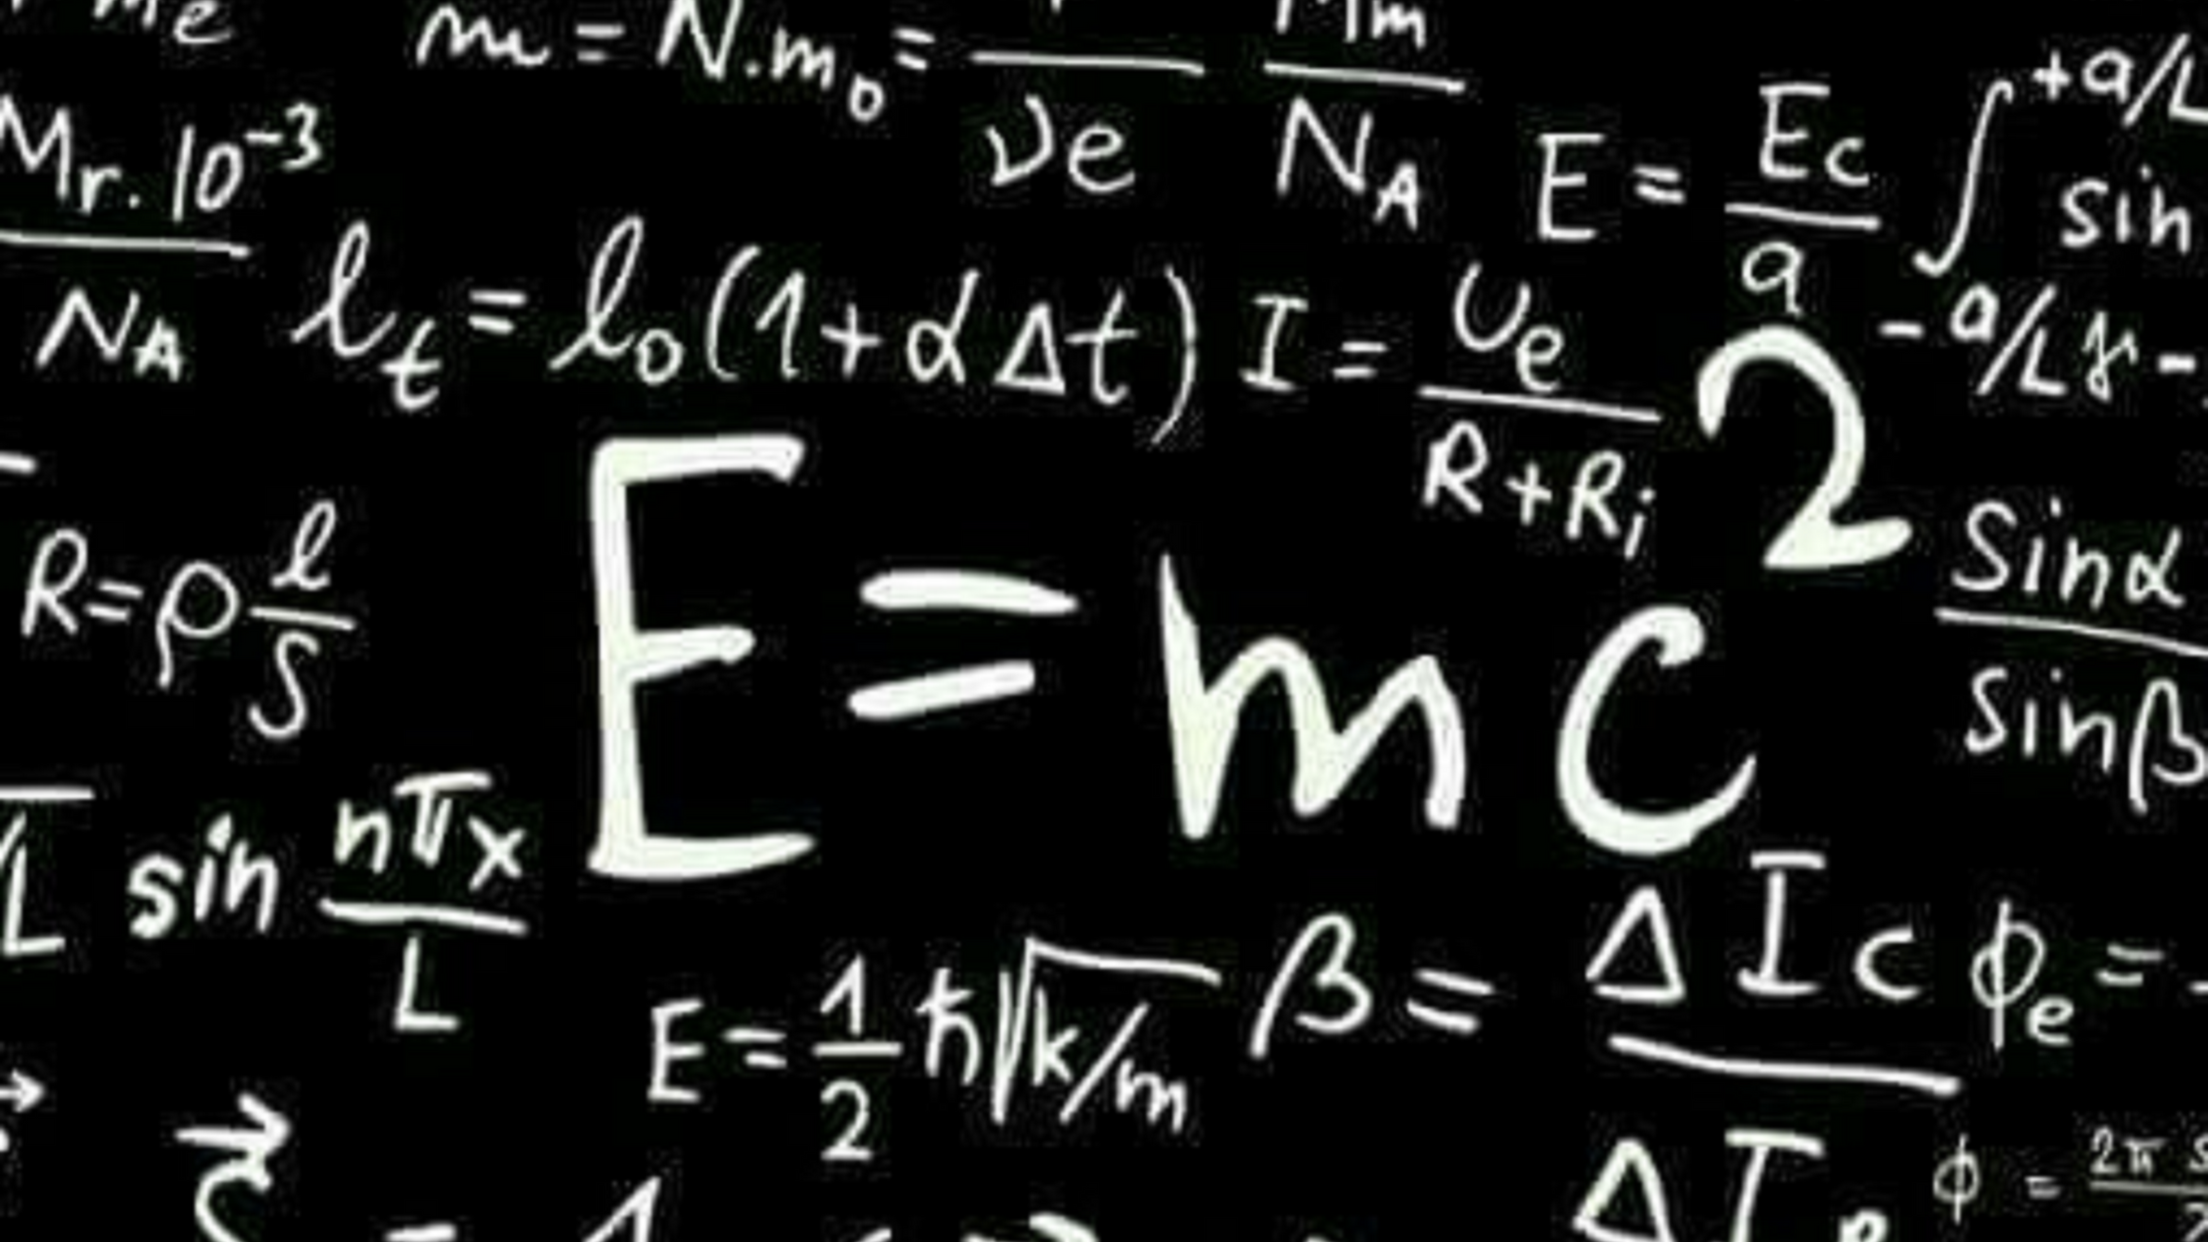 me
m = N.m₀ = 
νe
Mm
N_A
Mr.10⁻³
N_A
E = Ec/a
∫ +a/L
sin
-a/L
l_t = l₀(1+αΔt)
I = Ue/(R+Ri)
R = ρ l/S
E = mc²
Sinα
Sinβ
L sin nπx/L
E = 1/2 ħ√k/m
β = ΔIc
ΔI
ϕe =
ϕ = 2π